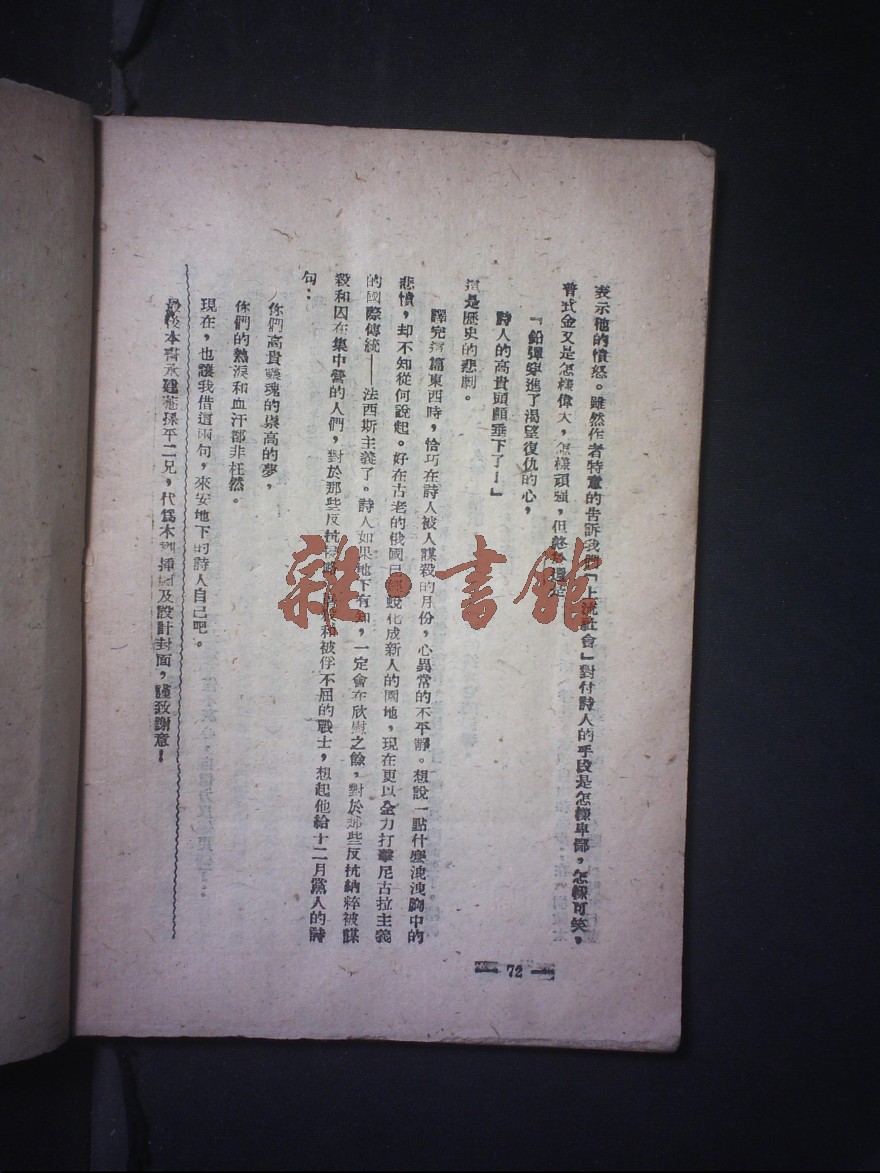 表示他的憤怒。雖然作者特意的告訴我們「上流社會」對付詩人的手段是怎樣卑鄙，怎樣可笑，
普式金又是怎樣偉大，怎樣頑強，但終於還是
『鉛彈穿進了渴望復仇的心，
詩人的高貴頭顱垂下了！』
這是歷史的悲劇。
譯完這篇東西時，恰巧在詩人被人謀殺的月份，心異常的不平靜。想說一點什麼洩洩胸中的
悲憤，却不知從何說起。好在古老的俄國已經蛻化成新人的園地，現在更以全力打擊尼古拉主義
的國際傳統——法西斯主義了。詩人如果地下有知，一定會在欣慰之餘，對於那些反抗納粹被謀
殺和囚在集中營的人們，對於那些反抗侵略和被俘不屈的戰士，想起他給十二月黨人的詩
句：
你們高貴靈魂的崇高的夢，
你們的熱淚和血汗都非枉然。
現在，也讓我借這兩句，來安地下的詩人自己吧。
最後本書承建菴操平二兄，代爲木刻插圖及設計封面，謹致謝意！
72
雜·書館